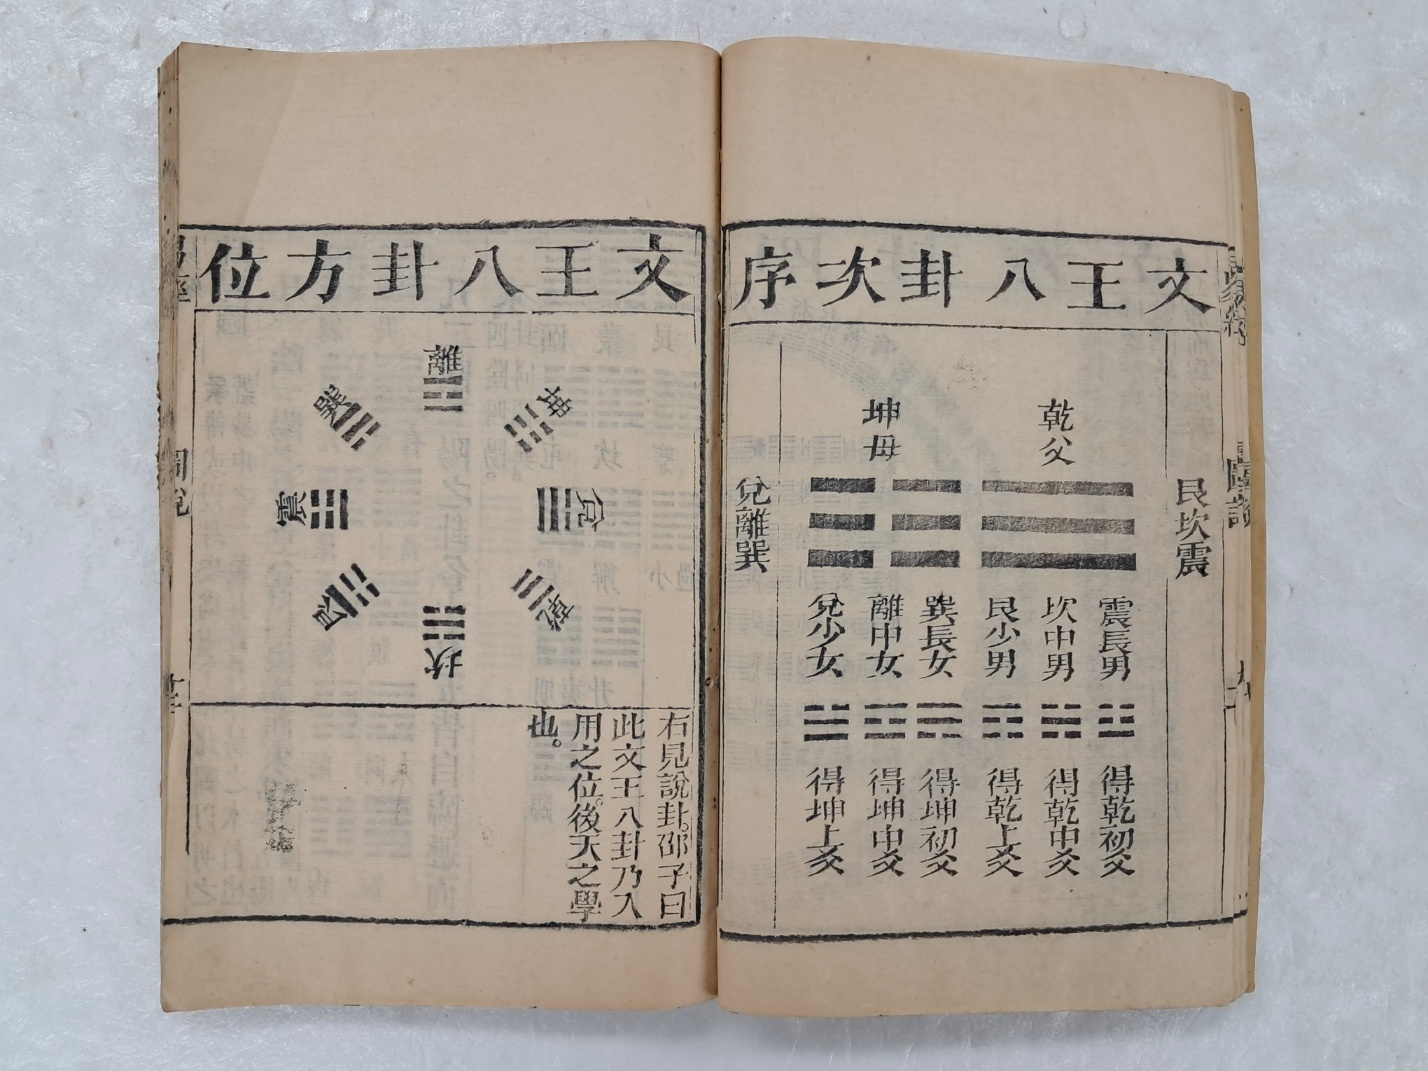 文王八卦次序
艮坎震
乾父
坤母
震長男
坎中男
艮少男
巽長女
離中女
兌少女
得乾初爻
得乾中爻
得乾上爻
得坤初爻
得坤中爻
得坤上爻
兌離巽
文王八卦方位
離
坤
兌
乾
坎
艮
震
巽
右見說卦。邵子曰
此文王八卦乃入
用之位。後天之學
也。
圖說